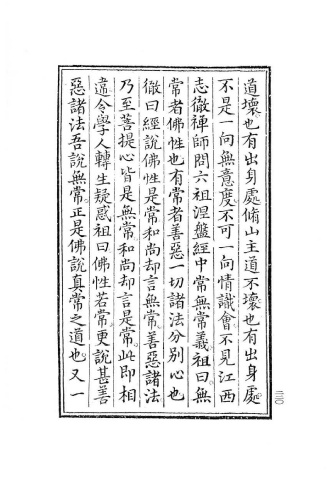 道壞也有出身處脩山主道不壞也有出身處
不是一向無意度不可一向情識會不見江西
志徹禪師問六祖涅盤經中常無常義祖曰無
常者佛性也有常者善惡一切諸法分別心也
徹曰經說佛性是常和尚却言無常善惡諸法
乃至菩提心皆是無常和尚却言是常此即相
違令學人轉生疑惑祖曰佛性若常更說甚善
惡諸法吾說無常正是佛說真常之道也又一